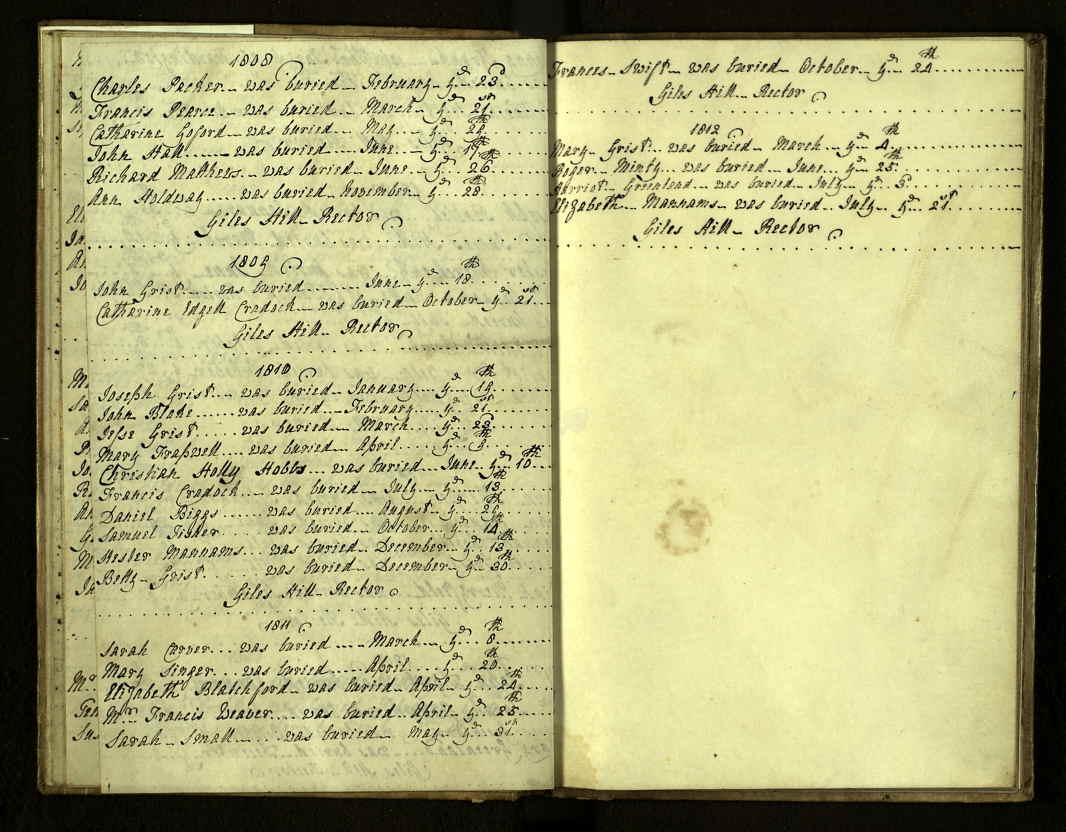 1808
Charles Packer was buried February yd 23d
Francis Pearce was buried March yd 21st
Catharine Goford was buried May yd 22
John Hall was buried June yd 19th
Richard Mathews was buried June yd 26th
Ann Holdway was buried November yd 28th
Giles Hill Rector
1809
John Grist was buried June yd 18th
Catharine Edgell Cradock was buried October yd 21st
Giles Hill Rector
1810
Joseph Grist was buried January yd 19th
John Blake was buried February yd 21st
Jesse Grist was buried March yd 23d
Mary Trapwell was buried April yd 9th
Christian Holly Hobbs was buried June yd 10th
Francis Cradock was buried July yd 13th
Daniel Biggs was buried August yd
Samuel Fisher was buried October yd 14th
Hester Mannams was buried December yd 13th
Betty Grist was buried December yd 30th
Giles Hill Rector
1811
Sarah Carver was buried March yd 8th
Mary Singer was buried April yd 20th
Elizabeth Blatchford was buried April yd 24th
Mr Francis Weaver was buried April yd 25th
Sarah Small was buried May yd 31st
Frances Swift was buried October yd 24th
Giles Hill Rector
1812
Mary Grist was buried March yd 4th
Roger Minty was buried June yd 25th
Harriot Greenland was buried July yd
Elizabeth Mannams was buried July yd 21st
Giles Hill Rector